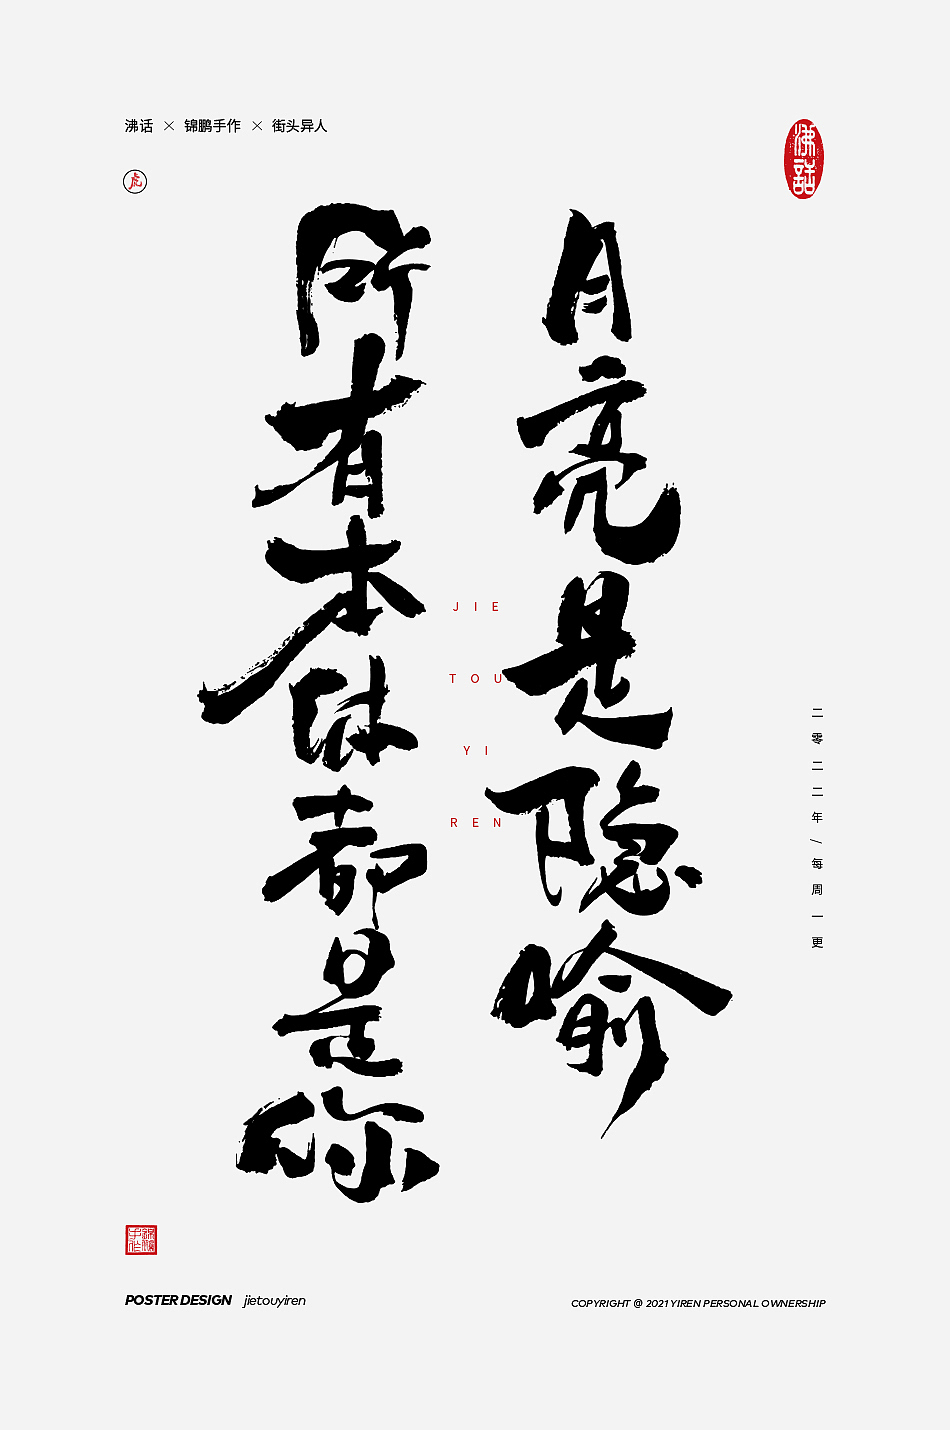 沸话 × 锦鹏手作 × 街头异人
沸話
虎
月亮是隐喻
所有本体都是你
JIE
TOU
YI
REN
二零二二年/每周一更
锦鹏手作
POSTER DESIGN jietouyiren
COPYRIGHT @ 2021 YIREN PERSONAL OWNERSHIP